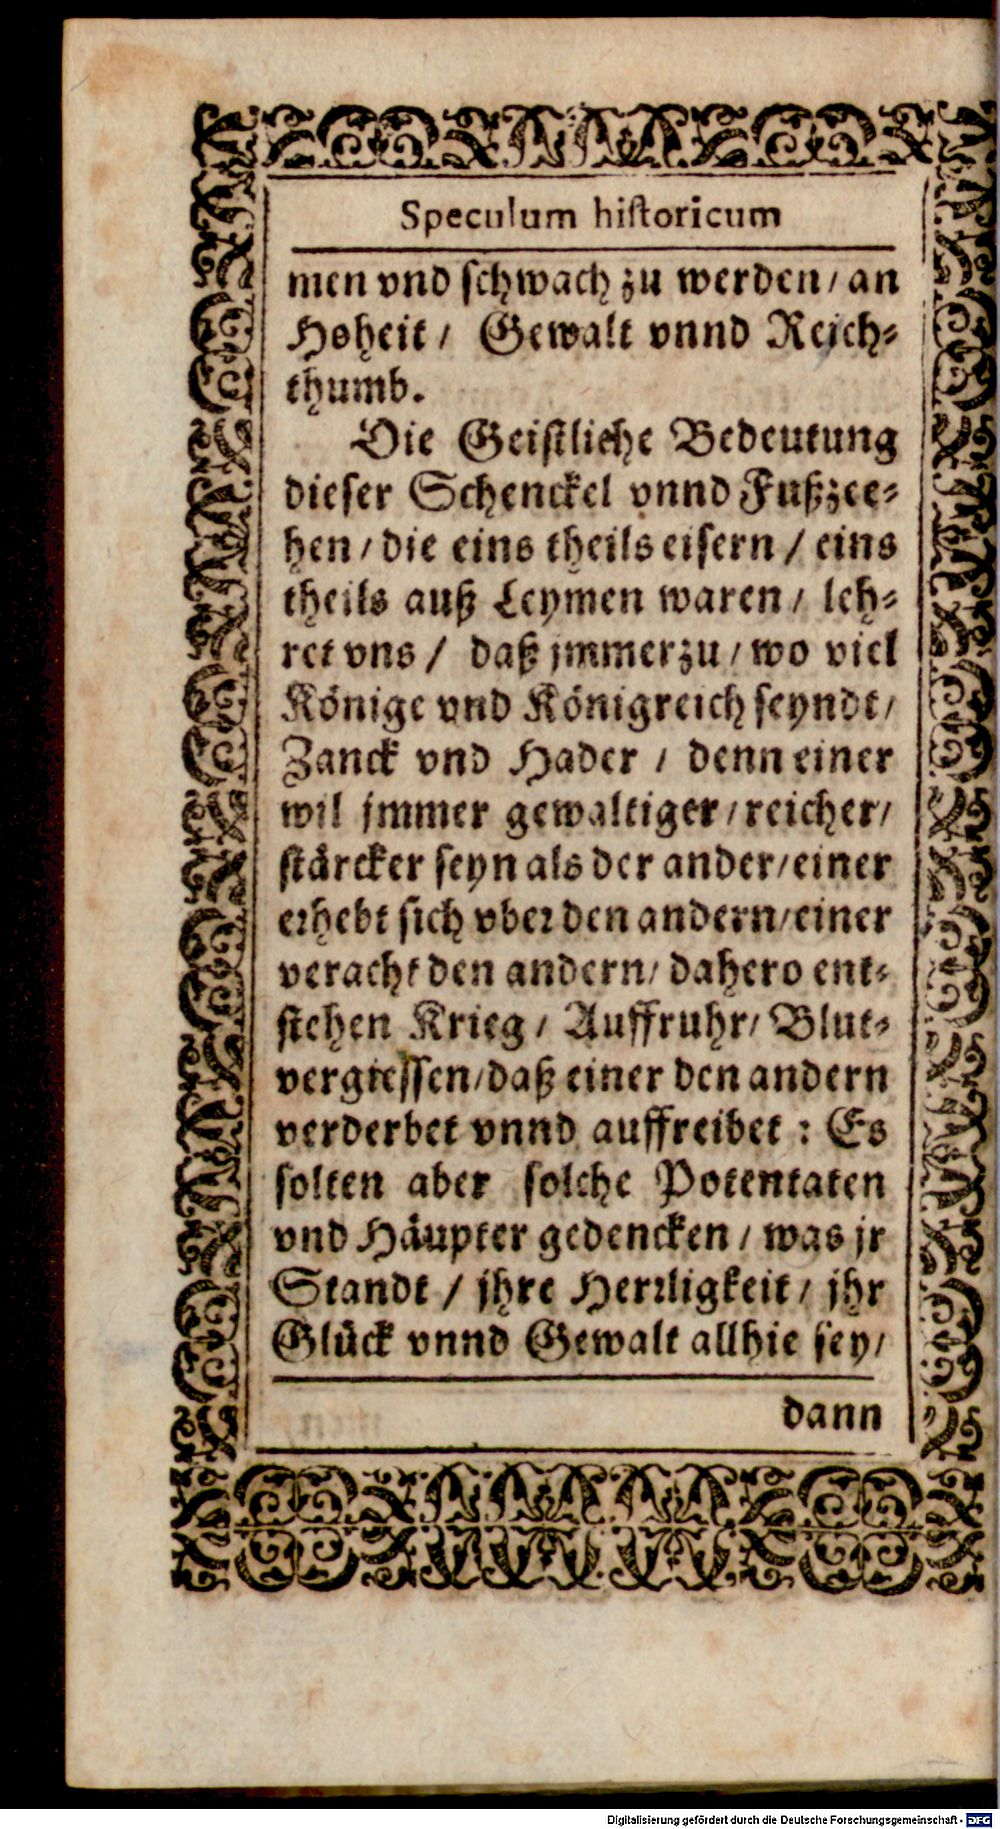 Speculum hiſtoricum
men vnd ſchwach zu werden / an
Hoheit / Gewalt vnnd Reich⸗
thumb.
Die Geiſtliche Bedeutung
dieſer Schenckel vnnd Fußzee⸗
hen / die eins theils eiſern / eins
theils auß Leymen waren / leh⸗
ret vns / daß jmmerzu / wo viel
Könige vnd Königreich ſeyndt /
Zanck vnd Hader / denn einer
wil jmmer gewaltiger / reicher /
ſtärcker ſeyn als der ander / einer
erhebt ſich vber den andern / einer
veracht den andern / dahero ent⸗
ſtehen Krieg / Auffruhr / Blut⸗
vergieſſen / daß einer den andern
verderbet vnnd auffreibet : Es
ſolten aber ſolche Potentaten
vnd Häupter gedencken / was jr
Standt / jhre Herrligkeit / jhr
Glück vnnd Gewalt allhie ſey /
dann
Digitalisierung gefördert durch die Deutsche Forschungsgemeinschaft - DFG